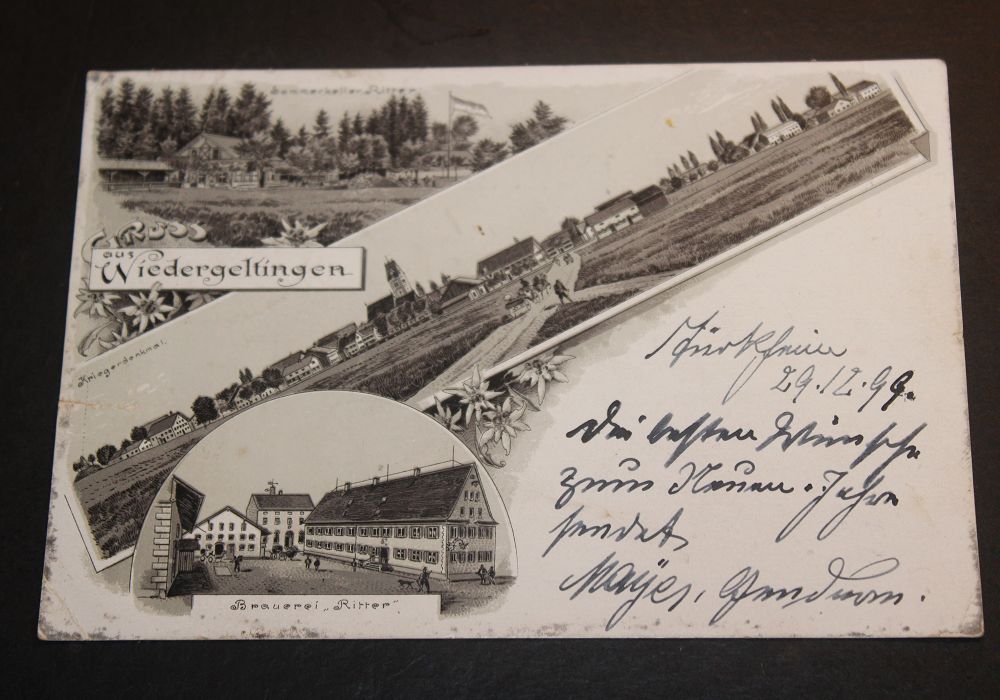 Sommerkeller Ritter.
Gruss
aus
Wiedergeltingen
Kriegerdenkmal.
Türkheim
29.12.99.
Die besten Wünsche
zum Neuen Jahre
sendet
Brauerei „Ritter".